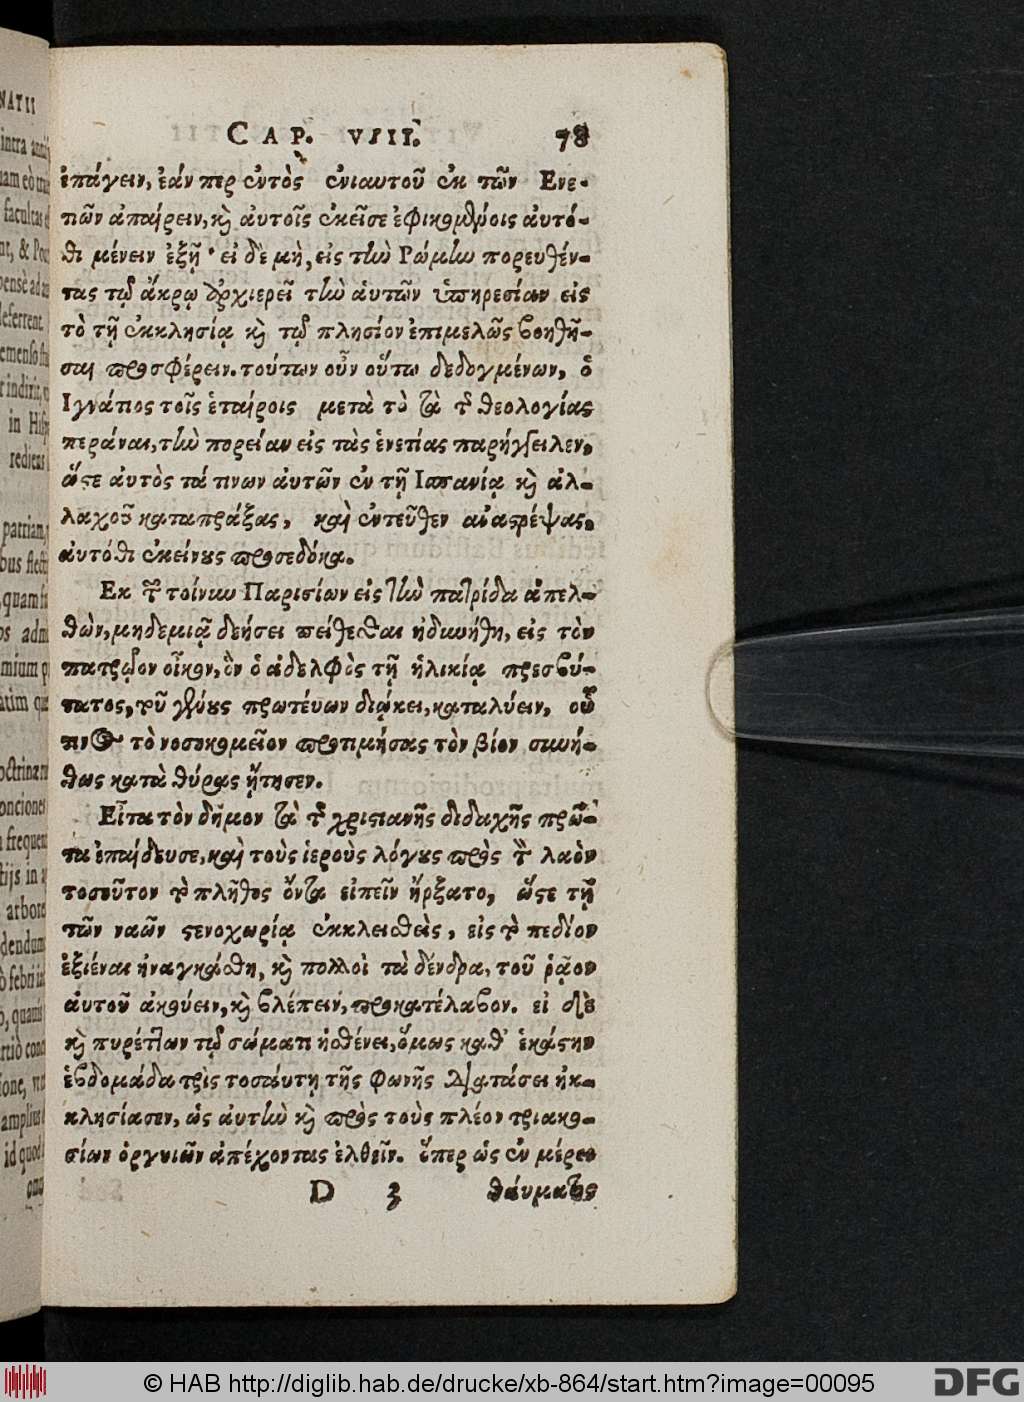 NATII
intra
facultas
deferrent
in Hisp
rediens
patriam,
quam
CAP. VIII. 78
ἐπάγειν, ἐάν περ ἐντὸς ἐνιαυτοῦ ἐκ τῶν Ενε-
τιῶν ἀπαίρειν, κὶ αὐτοῖς ἐκεῖσε ἐφικομένοις αὐτό-
θι μένειν ἐξῇ· εἰ δὲ μὴ, εἰς τὴν Ρώμην πορευθέν-
τας τῷ ἄκρῳ ἀρχιερεῖ τὴν αὑτῶν ὑπηρεσίαν εἰς
τὸ τῇ ἐκκλησίᾳ κὶ τῷ πλησίον ἐπιμελῶς βοηθῆ-
σαι προσφέρειν. τούτων οὖν οὕτω δεδογμένων, ὁ
Ιγνάτιος τοῖς ἑταίροις μετὰ τὸ τὰ τῆς θεολογίας
περάναι, τὴν πορείαν εἰς τὰς ἑνετίας παρήγγειλεν,
ὥστε αὐτὸς τά τινων αὐτῶν ἐν τῇ Ισπανίᾳ κὶ ἀλ-
λαχοῦ καταπράξας, καὶ ἐντεῦθεν ἀναστρέψας,
αὐτόθι ἐκείνους προσεδόκα.
Εκ τῶν τοίνυν Παρισίων εἰς τὴν πατρίδα ἀπελ-
θὼν, μηδεμιᾷ δεήσει πείθεσθαι ἠδυνήθη, εἰς τὸν
πατρῷον οἶκον, ὃν ὁ ἀδελφὸς τῇ ἡλικίᾳ πρεσβύ-
τατος, τοῦ γένους πρωτέυων διῴκει, καταλύειν, οὗ
τινος τὸ νοσοκομεῖον προτιμήσας τὸν βίον συνή-
θως κατὰ θύρας ᾔτησεν.
Εἶτα τὸν δῆμον τὰ τῆς χριστιανῆς διδαχῆς πρῶ-
τα ἐπαίδευσε, καὶ τοὺς ἱεροὺς λόγους πρὸς τὸν λαὸν
τοσοῦτον τὸ πλῆθος ὄντα εἰπεῖν ἤρξατο, ὥστε τῇ
τῶν ναῶν στενοχωρίᾳ ἐκκλεισθεὶς, εἰς τὸ πεδίον
ἐξιέναι ἠναγκάσθη, κὶ πολλοὶ τὰ δένδρα, τοῦ ῥᾷον
αὐτοῦ ἀκούειν, κὶ βλέπειν, προκατέλαβον. εἰ δὲ
κὶ πυρέττων τῷ σώματι ἠσθένει, ὅμως καθ’ ἑκάστην
ἑβδομάδα τρὶς τοσαύτῃ τῆς φωνῆς διατάσει ἠκ-
κλησίασεν, ὡς αὐτὴν κὶ πρὸς τοὺς πλέον τριακο-
σίων ὀργυιῶν ἀπέχοντας ἐλθεῖν. ὅπερ ὡς ἐν μέρει
D 3 θαύματος
© HAB http://diglib.hab.de/drucke/xb-864/start.htm?image=00095
DFG